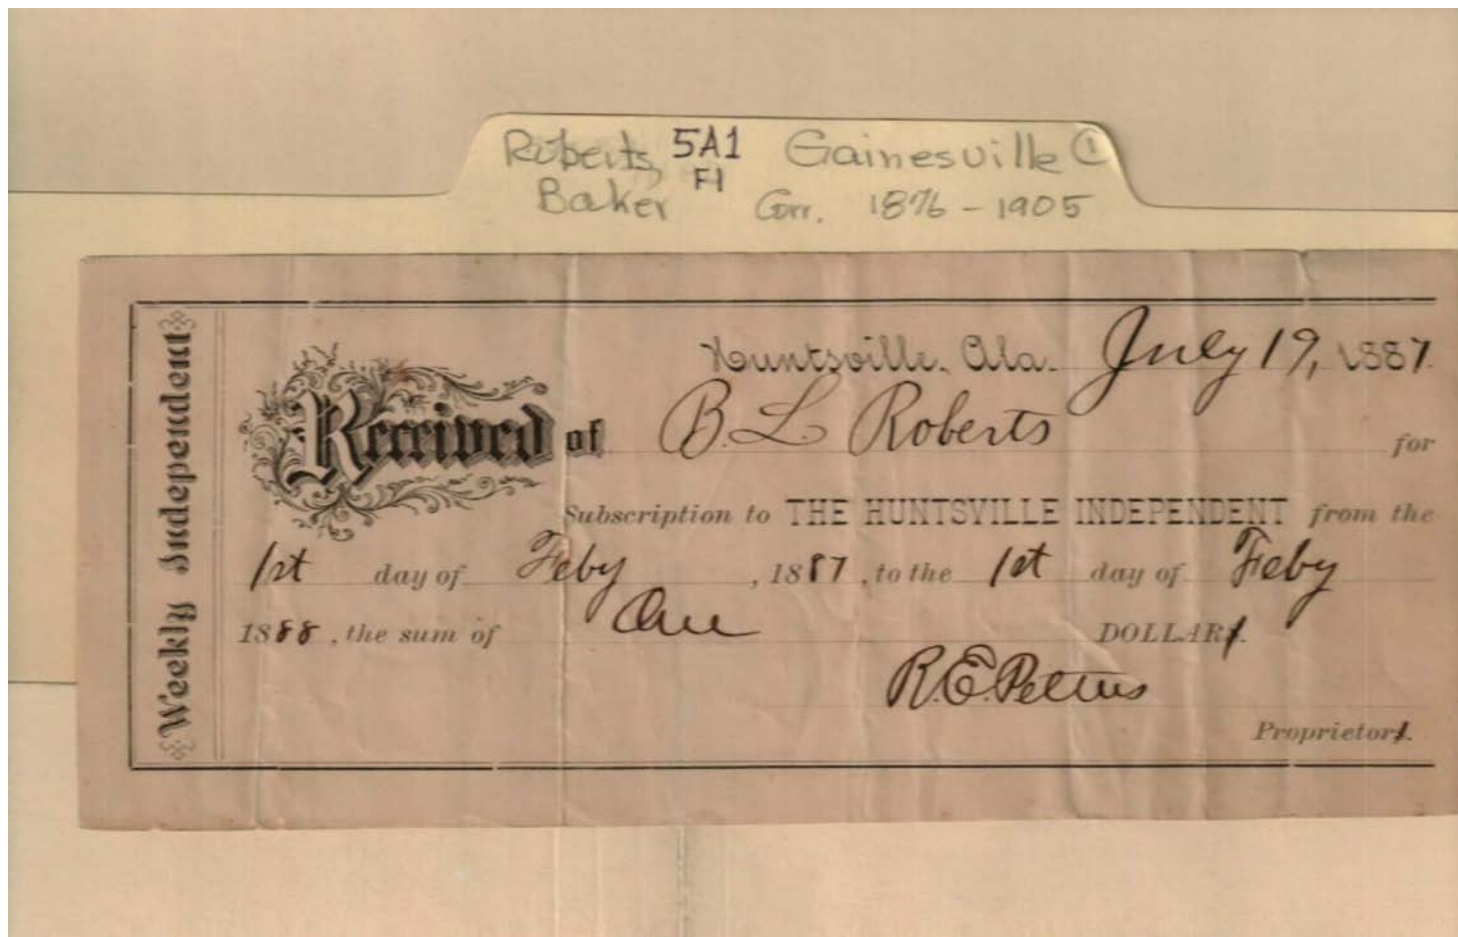 Roberts, 5A1 Gainesville ①
Baker F1 Corr. 1876 - 1905
Weekly Independent
Huntsville, Ala. July 19, 1887.
Received of B. L. Roberts for
Subscription to THE HUNTSVILLE INDEPENDENT from the
1st day of Feby, 1887, to the 1st day of Feby
1888, the sum of One DOLLARS.
R. E. Pettus
Proprietors.